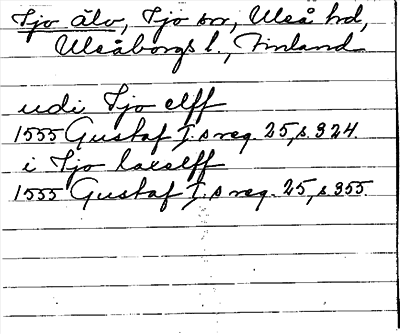 Ijo älv, Ijo sn, Uleå hd,
Uleåborgs l., Finland
udi Ijo elff
1555 Gustaf I:s reg. 25, s 324.
i Ijo laxelff
1555 Gustaf I:s reg. 25, s 355.